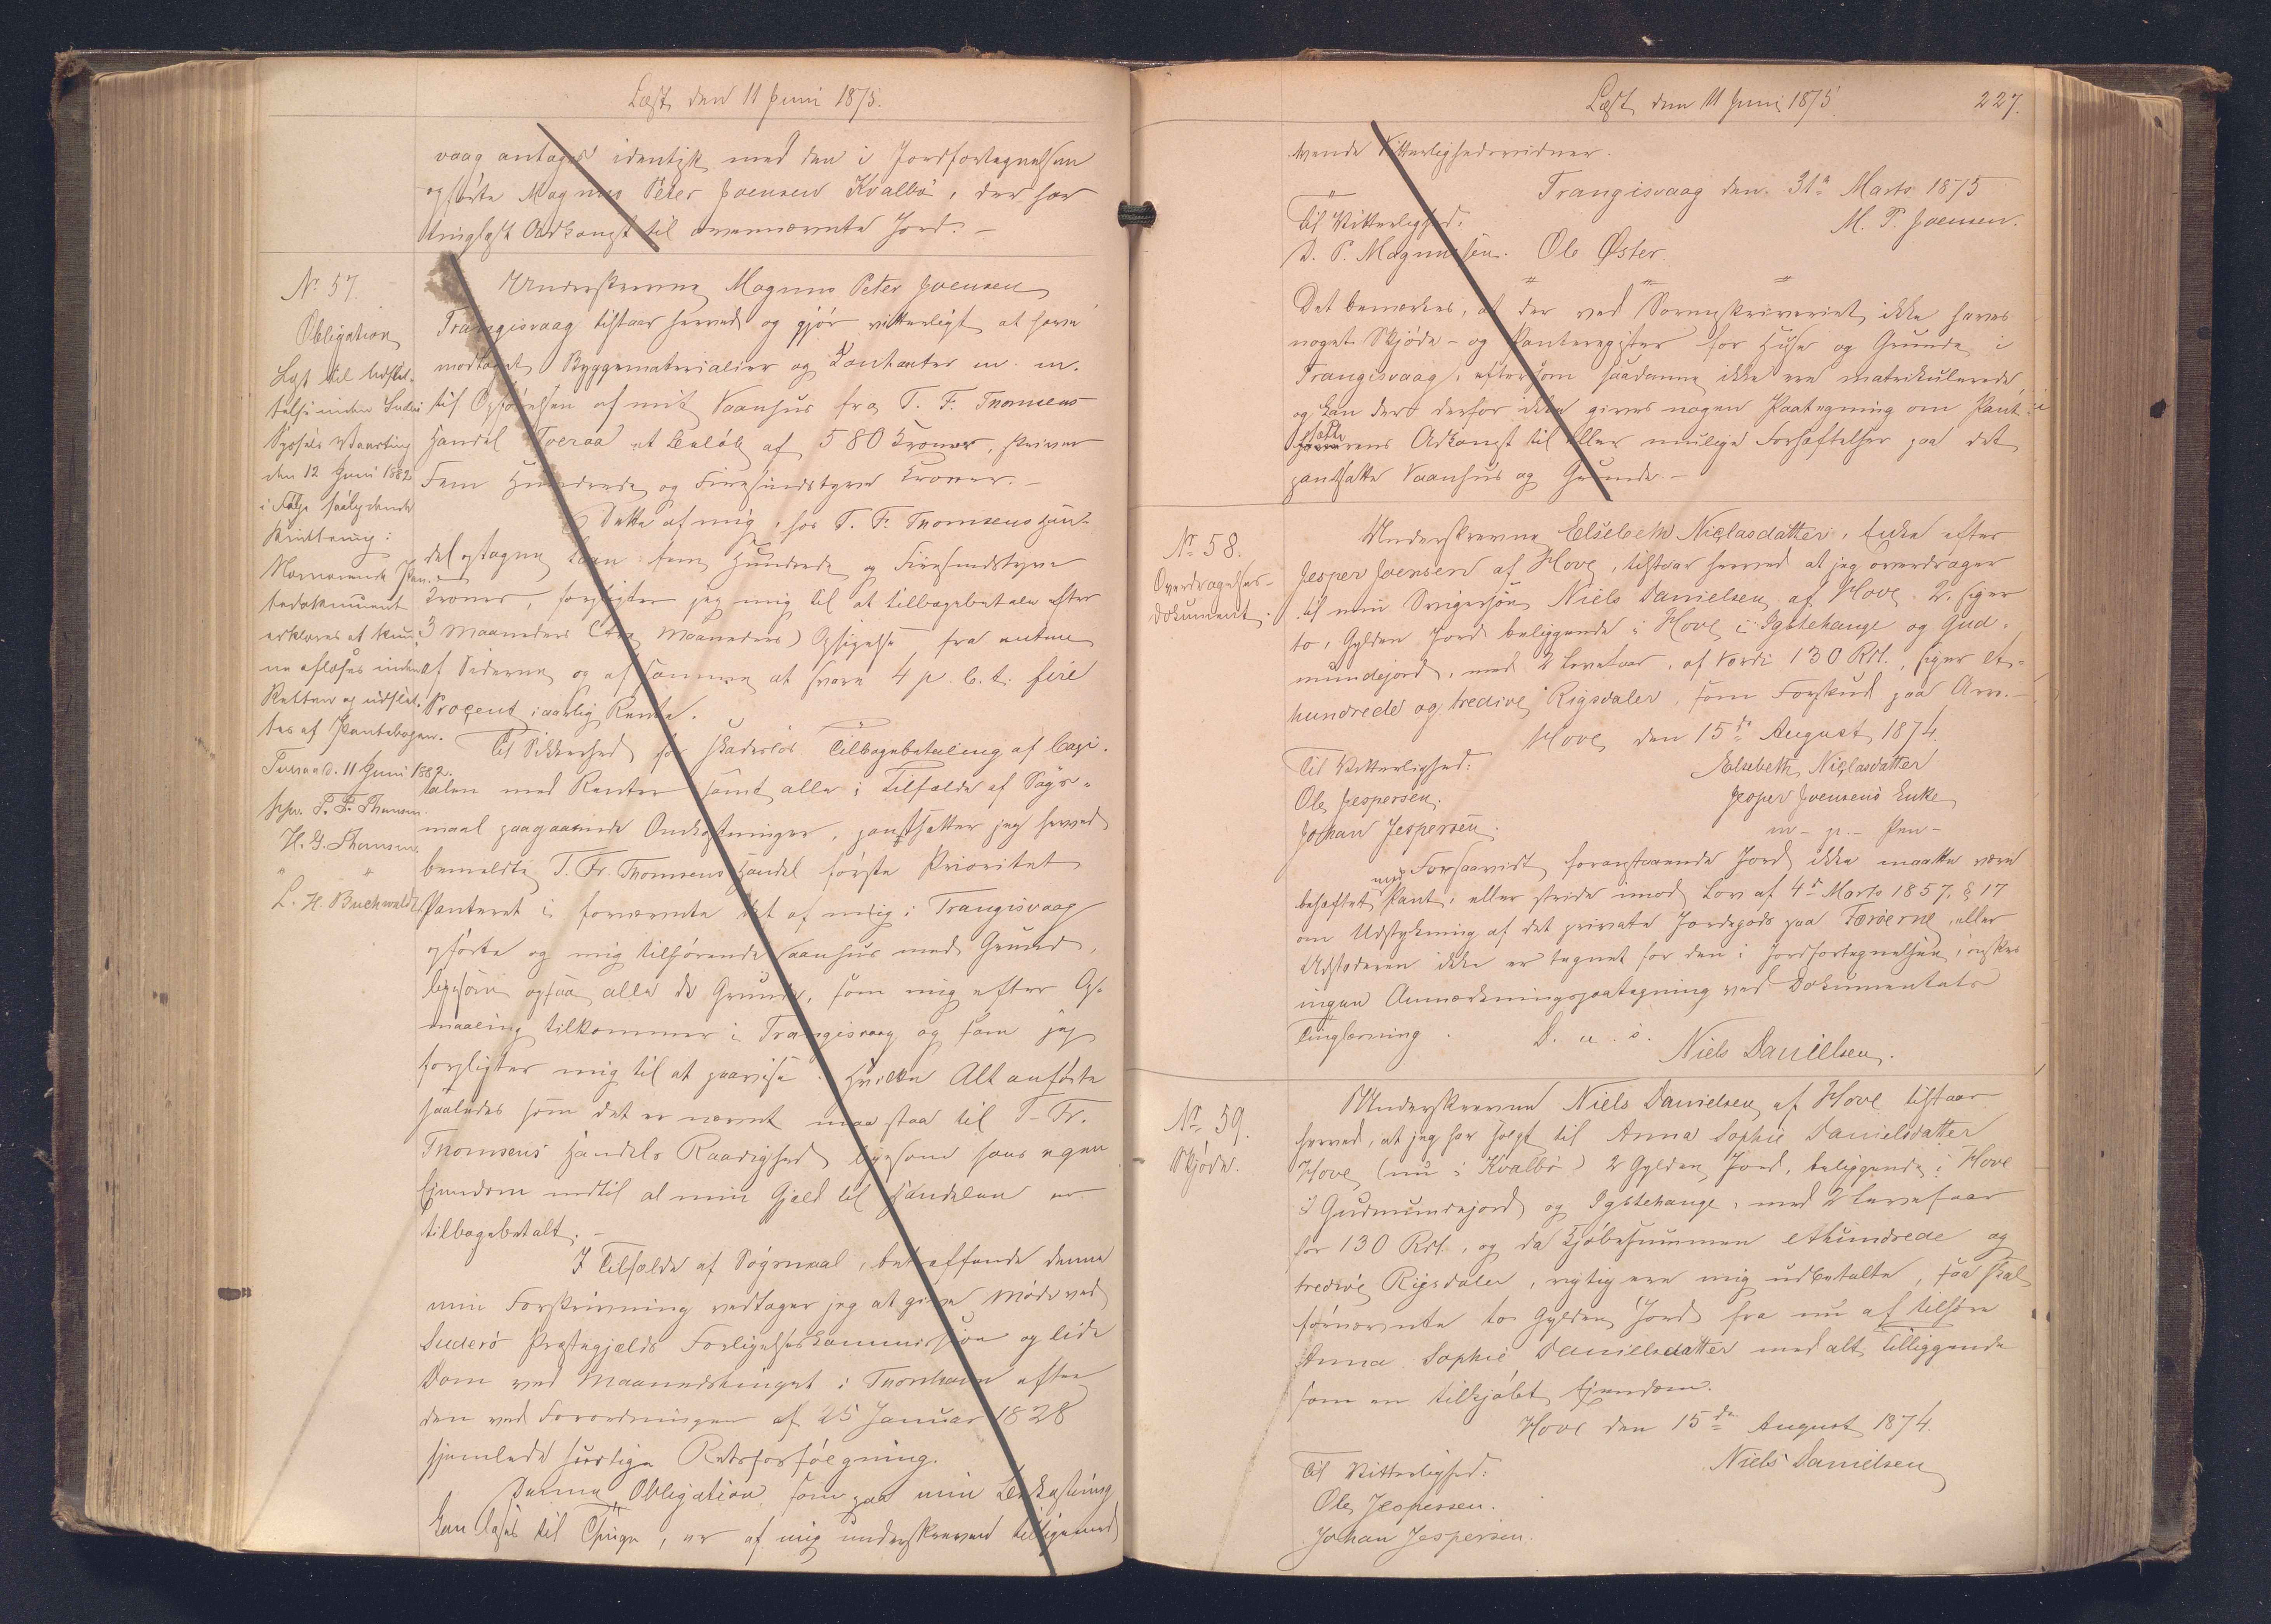 Læst den 11 Juni 1875.
vaag antages identisk med den i Jordfortegnelsen
opførte Magnus Peter Joensen Kvalbø, der har
tinglyst Adkomst til ovennævnte Jord. –
No 57.
Obligation
Læst til Udslet-
telse inden Suderø
Syssels Vaarting
den 12 Juni 1882
i Følge saalydende
Kvittering:
Nærværende Pan-
tedokument
erklæres at kun-
ne aflæses inden
Retten og udslet-
tes af Pantebogen.
Tveraa d. 11 Juni 1882.
ppr. T. F. Thomsen
H. G. Thomsen.
" "
L. H. Buchwaldt
Underskrevne Magnus Peter Joensen
Trangisvaag tilstaar herved og gjør vitterligt at have
modtaget Byggematerialier og Contanter m. m.
til Opførelsen af mit Vaanhus fra T. F. Thomsens
Handel Tveraa et Beløb af 580 Kroner, skriver
Fem Hundrede og Firesindstyve Kroner. –
Dette af mig, hos T. F. Thomsens Han-
del optagne Laan: fem Hundrede og Firesindstyve
Kroner, forpligter jeg mig til at tilbagebetale efter
3 Maaneders (tre Maaneders) Opsigelse fra enten
af Siderne og af Samme at svare 4 p. C. t. fire
Procent i aarlig Rente.
Til Sikkerhed for skadesløs Tilbagebetaling af Capi-
talen med Renter samt alle i Tilfælde af Søgs-
maal paagaaende Omkostninger, pantsætter jeg herved
bemeldte T. Fr. Thomsens Handel første Prioritet
Panteret i fornævnte det af mig i Trangisvaag
opførte og mig tilhørende Vaanhus med Grund,
ligesom ogsaa alle de Grunde, som mig efter Op-
maaling tilkommer i Trangisvaag og som jeg
forpligter mig til at paavise. Hvilket Alt anførte
saaledes som det er nævnt maa staa til T. Fr.
Thomsens Handels Raadighed ligesom hans egen
Ejendom indtil al min Gjæld til Handelen er
tilbagebetalt. –
I Tilfælde af Søgsmaal, betræffende denne
min Forskrivning vedtager jeg at give Møde ved
Suderø Præstegjælds Forligelseskommission og lide
Dom ved Maanedstinget i Thorshavn efter
den ved Forordningen af 25 Januar 1828
hjemlede hurtige Retsforfølgning.
Denne Obligation som paa min Bekostning
kan læses til Thinge, er af mig underskreven tilligemed
Læst den 11 Juni 1875.
227.
tvende Vitterlighedsvidner.
Trangisvaag den 31te Marts 1875
Til Vitterlighed:
M. P. Joensen.
D. P. Magnussen. Ole Øster.
Det bemærkes, at der ved Sorenskriveriet ikke haves
noget Skjøde- og Panteregister for Huse og Grunde i
Trangisvaag, eftersom saadanne ikke ere matrikulerede,
og kan der derfor ikke gives nogen Paategning om Pant-
sætterens Adkomst til eller mulige Forhæftelser paa det
pantsatte Vaanhus og Grunde. –
No 58.
Overdragelses-
dokument.
Underskrevne Elsebeth Niclasdatter, Enke efter
Jesper Joensen af Hove, tilstaar herved at jeg overdrager
til min Svigersøn Niels Danielsen af Hove 2, siger
to, Gylden Jord beliggende i Hove i Igstehauge og Gud-
mundejord, med 2 Levefaar, af Værdi 130 Rdl., siger et-
hundrede og tredive Rigsdaler, som Forskud paa Arv. –
Hove den 15de August 1874.
Til Vitterlighed:
Elsebeth Niclasdatter
Ole Jespersen.
Jesper Joensens Enke
Johan Jespersen.
m – p. – Pen –
Forsaavidt foranstaaende Jord ikke maatte være
behæftet med Pant, eller stride imod Lov af 4de Marts 1857, § 17
om Udstykning af det private Jordegods paa Færøerne, eller
Udstederen ikke er tegnet for den i Jordfortegnelsen, ønskes
ingen Anmærkningspaategning ved Dokumentets
Tinglæsning.
D. u. s.
Niels Danielsen.
No 59.
Skjøde.
Underskrevne Niels Danielsen af Hove tilstaar
herved, at jeg har solgt til Anna Sophie Danielsdatter
Hove (nu i Kvalbø) 2 Gylden Jord, beliggende i Hove
i Gudmundejord og Igstehauge, med 2 Levefaar
for 130 Rdl., og da Kjøbesummen ethundrede og
tredive Rigsdaler, rigtig ere mig udbetalte, saa skal
fornævnte to Gylden Jord fra nu af tilhøre
Anna Sophie Danielsdatter med alt Tilliggende
som en tilkjøbt Ejendom.
Hove den 15de August 1874.
Til Vitterlighed:
Niels Danielsen
Ole Jespersen.
Johan Jespersen.